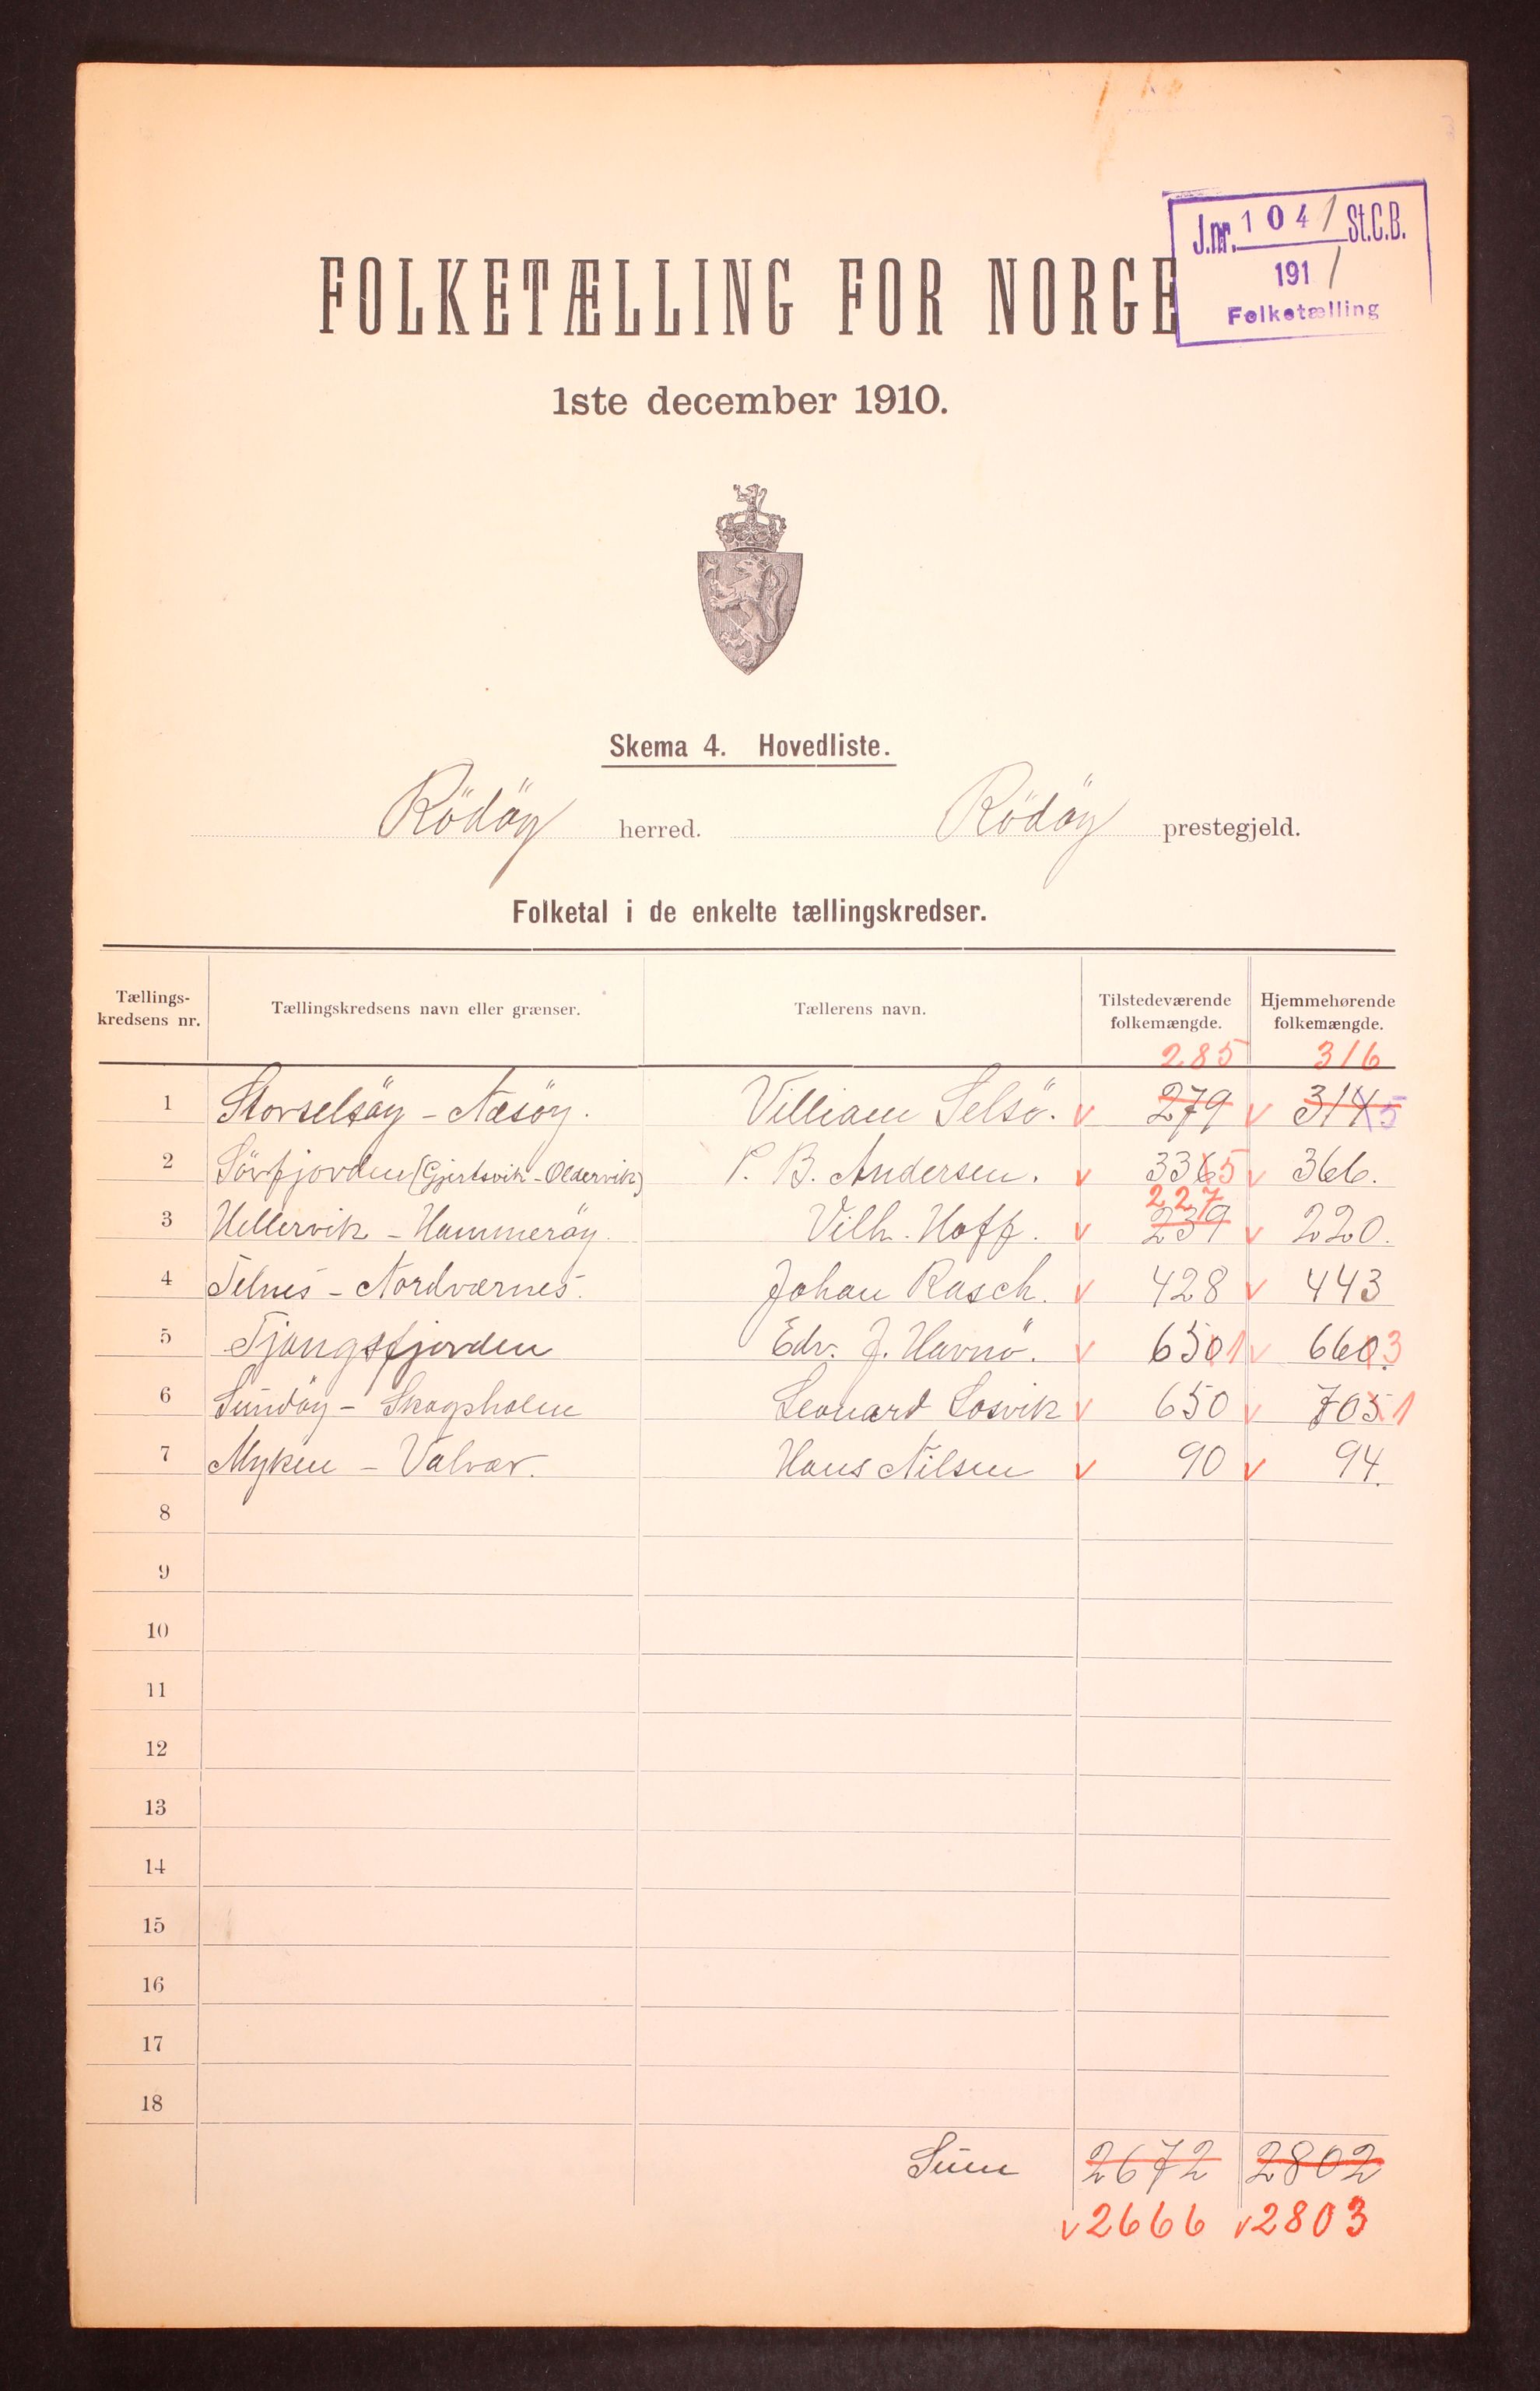 J.nr. 1041 St.C.B.
1911
Folketælling
FOLKETÆLLING FOR NORGE
1ste december 1910.
Skema 4. Hovedliste.
Rödöy herred. Rödöy prestegjeld.
Folketal i de enkelte tællingskredser.
Tællings-kredsens nr. Tællingskredsens navn eller grænser. Tællerens navn. Tilstedeværende folkemængde. Hjemmehørende folkemængde.
285 316
1 Storselsöy - Næsöy. Villiam Selsö. v 279 v 314 5
2 Sörfjorden (Gjertsvik - Oldervik) P. B. Andersen. v 336 5 v 366.
227
3 Hellervik - Hammeröy. Vilh. Hoff. v 239 v 220.
4 Telnes - Nordværnes. Johan Rasch. v 428 v 443
5 Tjongsfjorden Edv. J. Havnö. v 650 1 v 660. 3
6 Sundöy - Skogsholm Leonard Losvik v 650 v 705 1
7 Myken - Valvær. Hans Nilsen v 90 v 94.
8
9
10
11
12
13
14
15
16
17
18
Sum 2672 2802
v 2666 v 2803